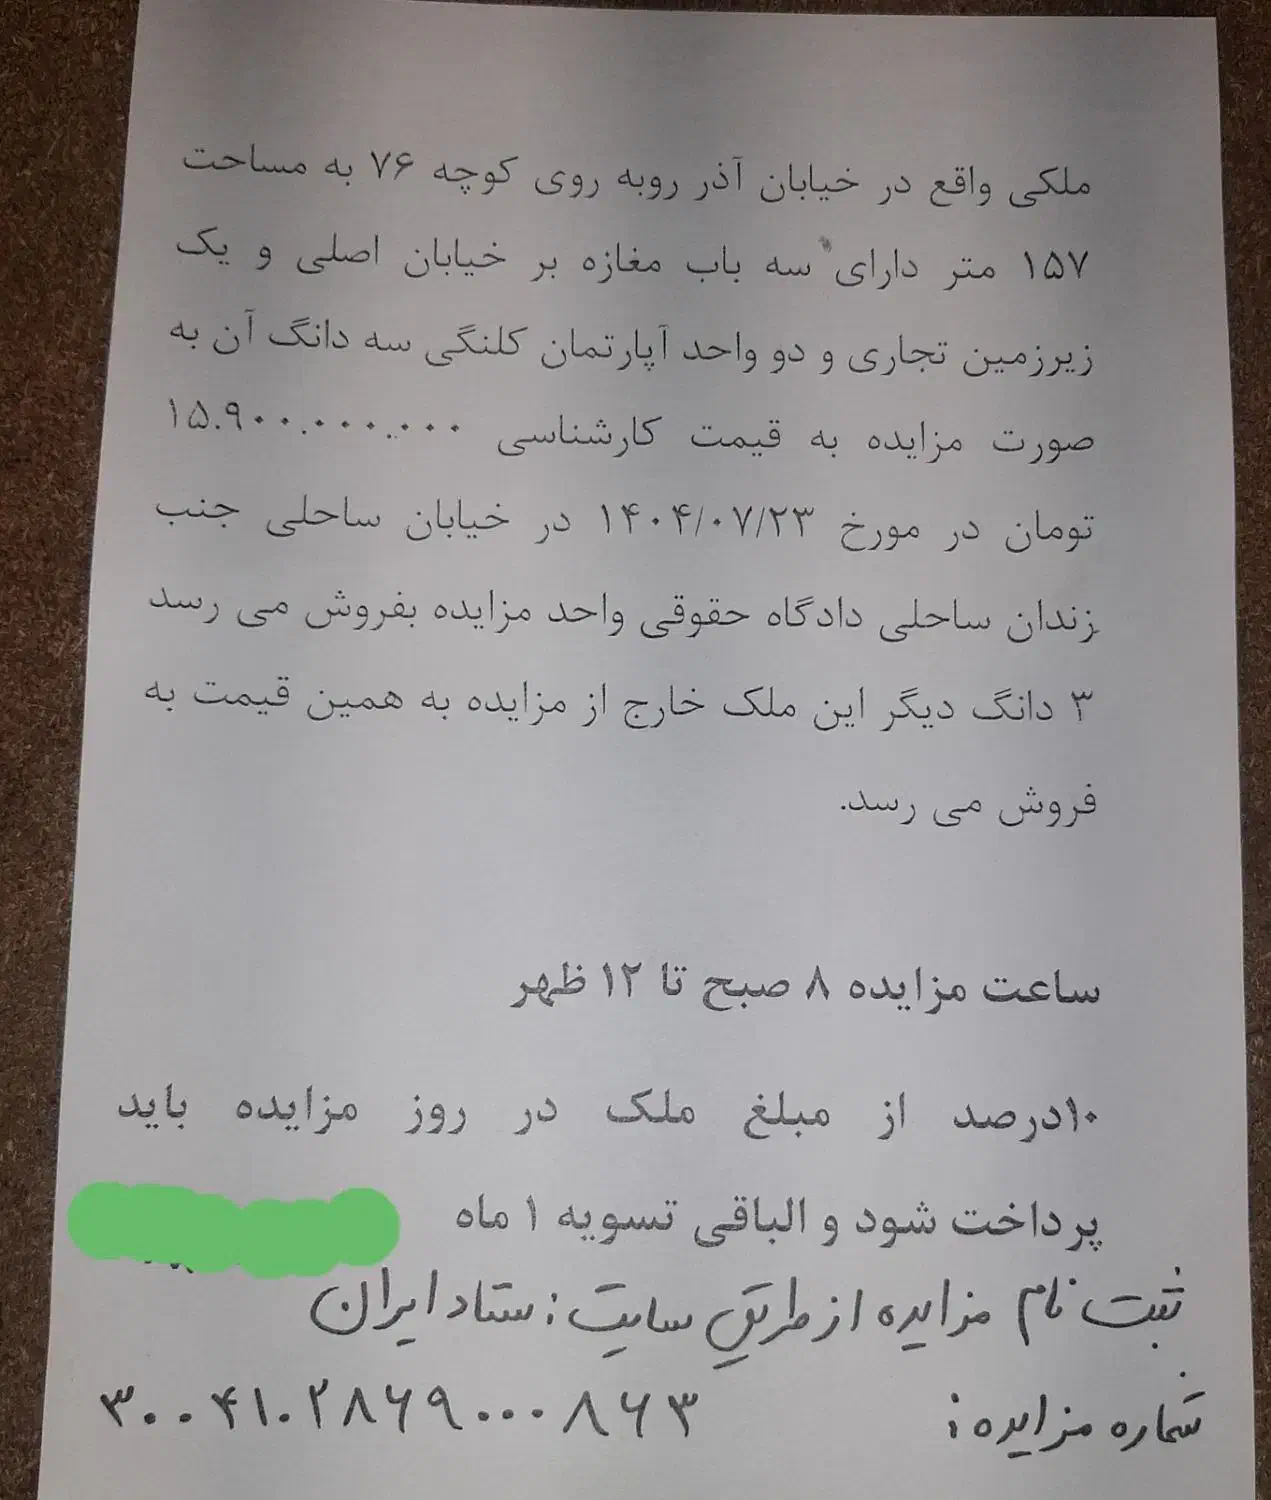 ملکی واقع در خیابان آذر روبه روی کوچه ۷۶ به مساحت
۱۵۷ متر دارای سه باب مغازه بر خیابان اصلی و یک
زیرزمین تجاری و دو واحد آپارتمان کلنگی سه دانگ آن به
صورت مزایده به قیمت کارشناسی ۱۵.۹۰۰.۰۰۰.۰۰۰
تومان در مورخ ۱۴۰۴/۰۷/۲۳ در خیابان ساحلی جنب
زندان ساحلی دادگاه حقوقی واحد مزایده بفروش می رسد
۳ دانگ دیگر این ملک خارج از مزایده به همین قیمت به
فروش می رسد.
ساعت مزایده ۸ صبح تا ۱۲ ظهر
۱۰درصد از مبلغ ملک در روز مزایده باید
پرداخت شود و الباقی تسویه ۱ ماه
ثبت نام مزایده از طریق سایت : ستاد ایران
شماره مزایده : ۳۰۰۴۱۰۲۸۶۹۰۰۰۸۶۳